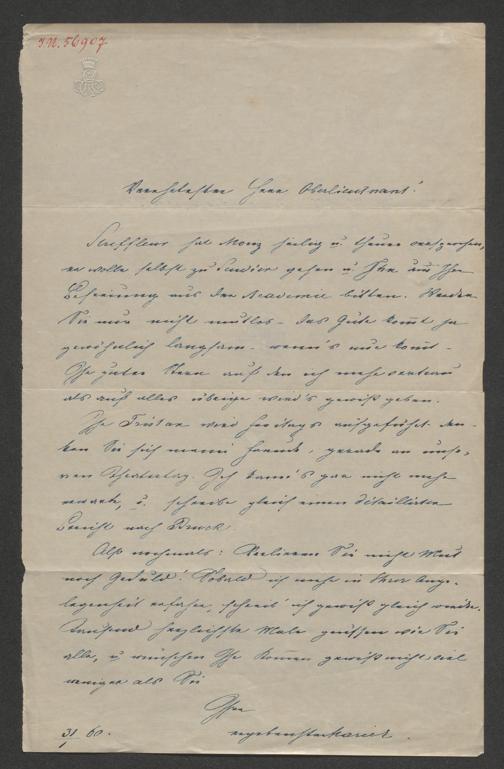 I.N. 56907
Verehrtester Herr Oberlieutnant!
hat Monz heilig u. theuer versprochen,
er wolle selbst zu gehen u Ihn um Ihre
Befreiung aus der Academie bitten. Werden
Sie nur nicht mutlos – das Gute komt ja
gewöhnlich langsam – wenn's nur komt –
Ihr guter Stern auf den ich mehr vertrau
als auf alles übrige wird's gewiß geben.
Ihr Tristan wird Freitags aufgeführt den-
ken Sie sich meine Freude, gerade an unse-
ren Theatertag. Ich kann's gar nicht mehr
u. schreibe gleich einen détaillirten
Bericht nach Bruck.
Also nochmals: Verlieren Sie nicht Mut
noch Geduld! Sobald ich mehr in Ihrer Ange-
legenheit erfahre, schreib' ich gewiß gleich wieder.
Tausend herzlichste Male grüßen wir Sie
alle, u wünschen Ihr Komen gewiß nicht viel
weniger als Sie
Ihre
ergebenste Marie
31/ 60.